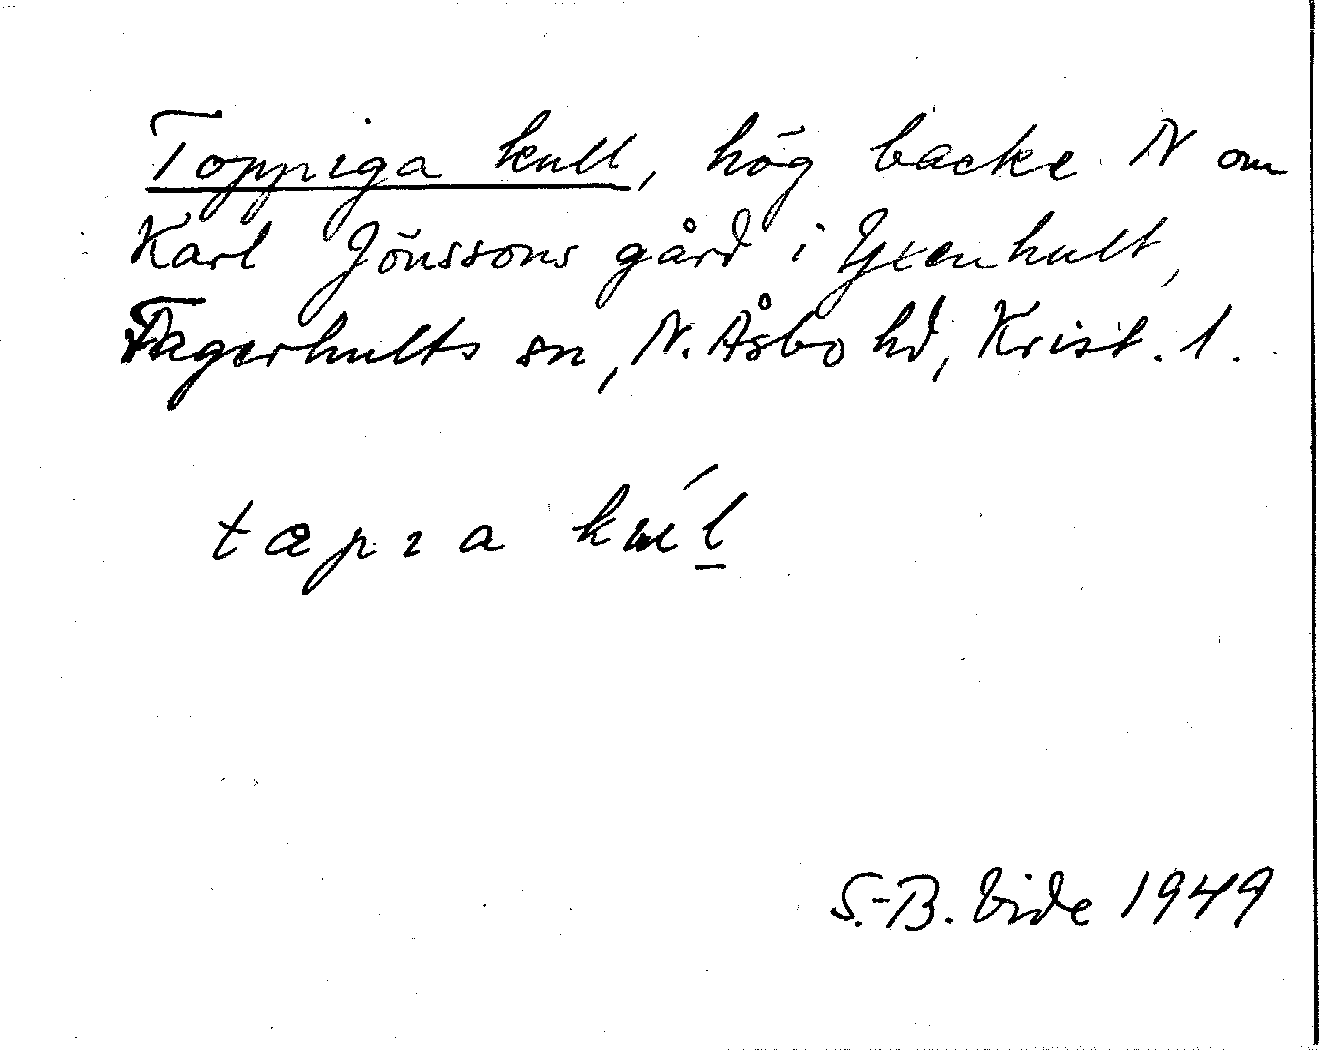 Toppiga kull, hög backe N om
Karl Jönssons gård i Yxenhult,
Fagerhults sn, N. Åsbo hd, Krist. l.
tæpıa kul
S.-B. Vide 1949